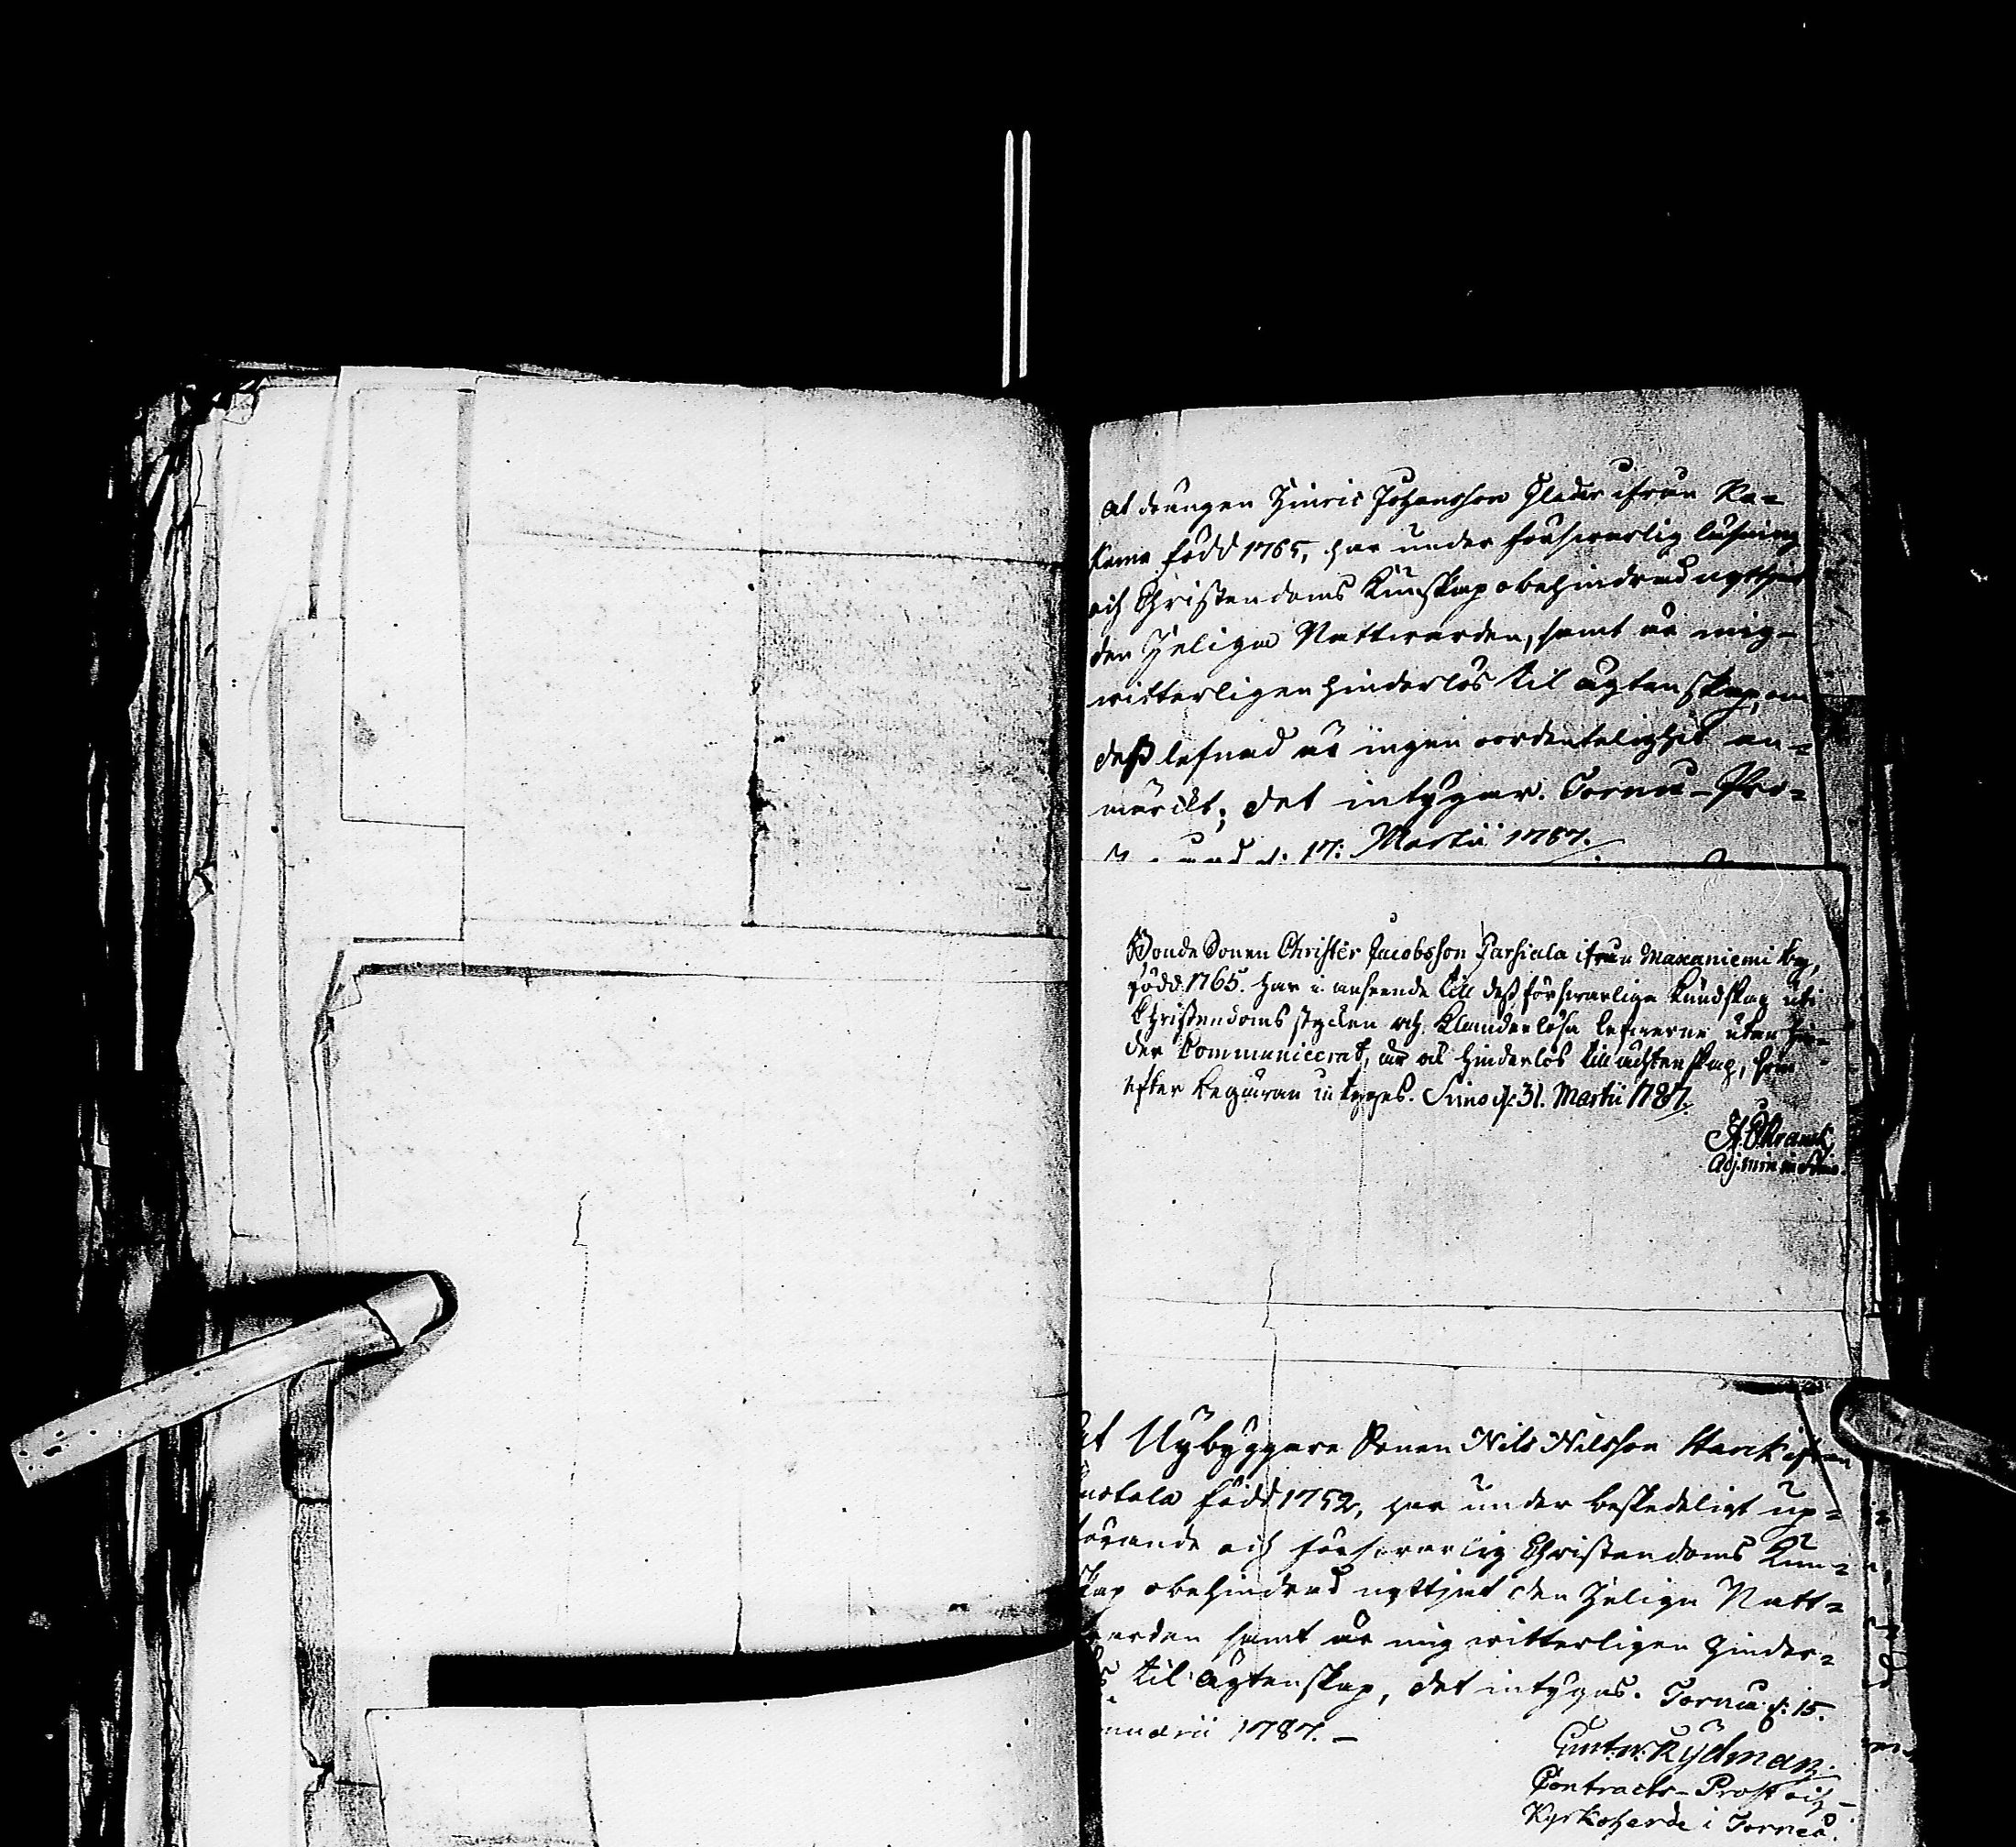 at drängen Hinric Johansson Glader ifrån Ka-
kama född 1765, har under försvarlig läsning
och Christendoms Kunskap obehindrad nyttjat
den Heliga Nattwarden, samt är mig-
witterligen hinderlös til ägtenskap, om
dess lefnad är ingen oordentelighet an-
märckt; det intÿgar. Torneå-Prä-
d. 17. Martii 1787.
Bonde Sonen Christer Jacobsson Parsiala ifrån Maxaniemi by,
född 1765. har i anseende till dess försvarliga Kundskap uti
Christendoms stycken och Klanderlösa lefwerne utan hin-
der Communicerat, är ock hinderlös till ächtenskap, som
efter begäran intyges. Simo d. 31. Martii 1787.
Adj. min. in Simo.
at Nÿbÿggare Sonen Nils Nilsson Starck ifrån
född 1752, har under beskedeligt up-
förande och försvarlig Christendoms Kun-
skap obehindrad nyttjat den Helige Natt-
warden samt är mig witterligen hinder-
lös til ägtenskap, det intÿgas. Torneå d. 15.
1787. –
Kÿdman
Contracts-Prost och
Kyrkoherde i Torneå.